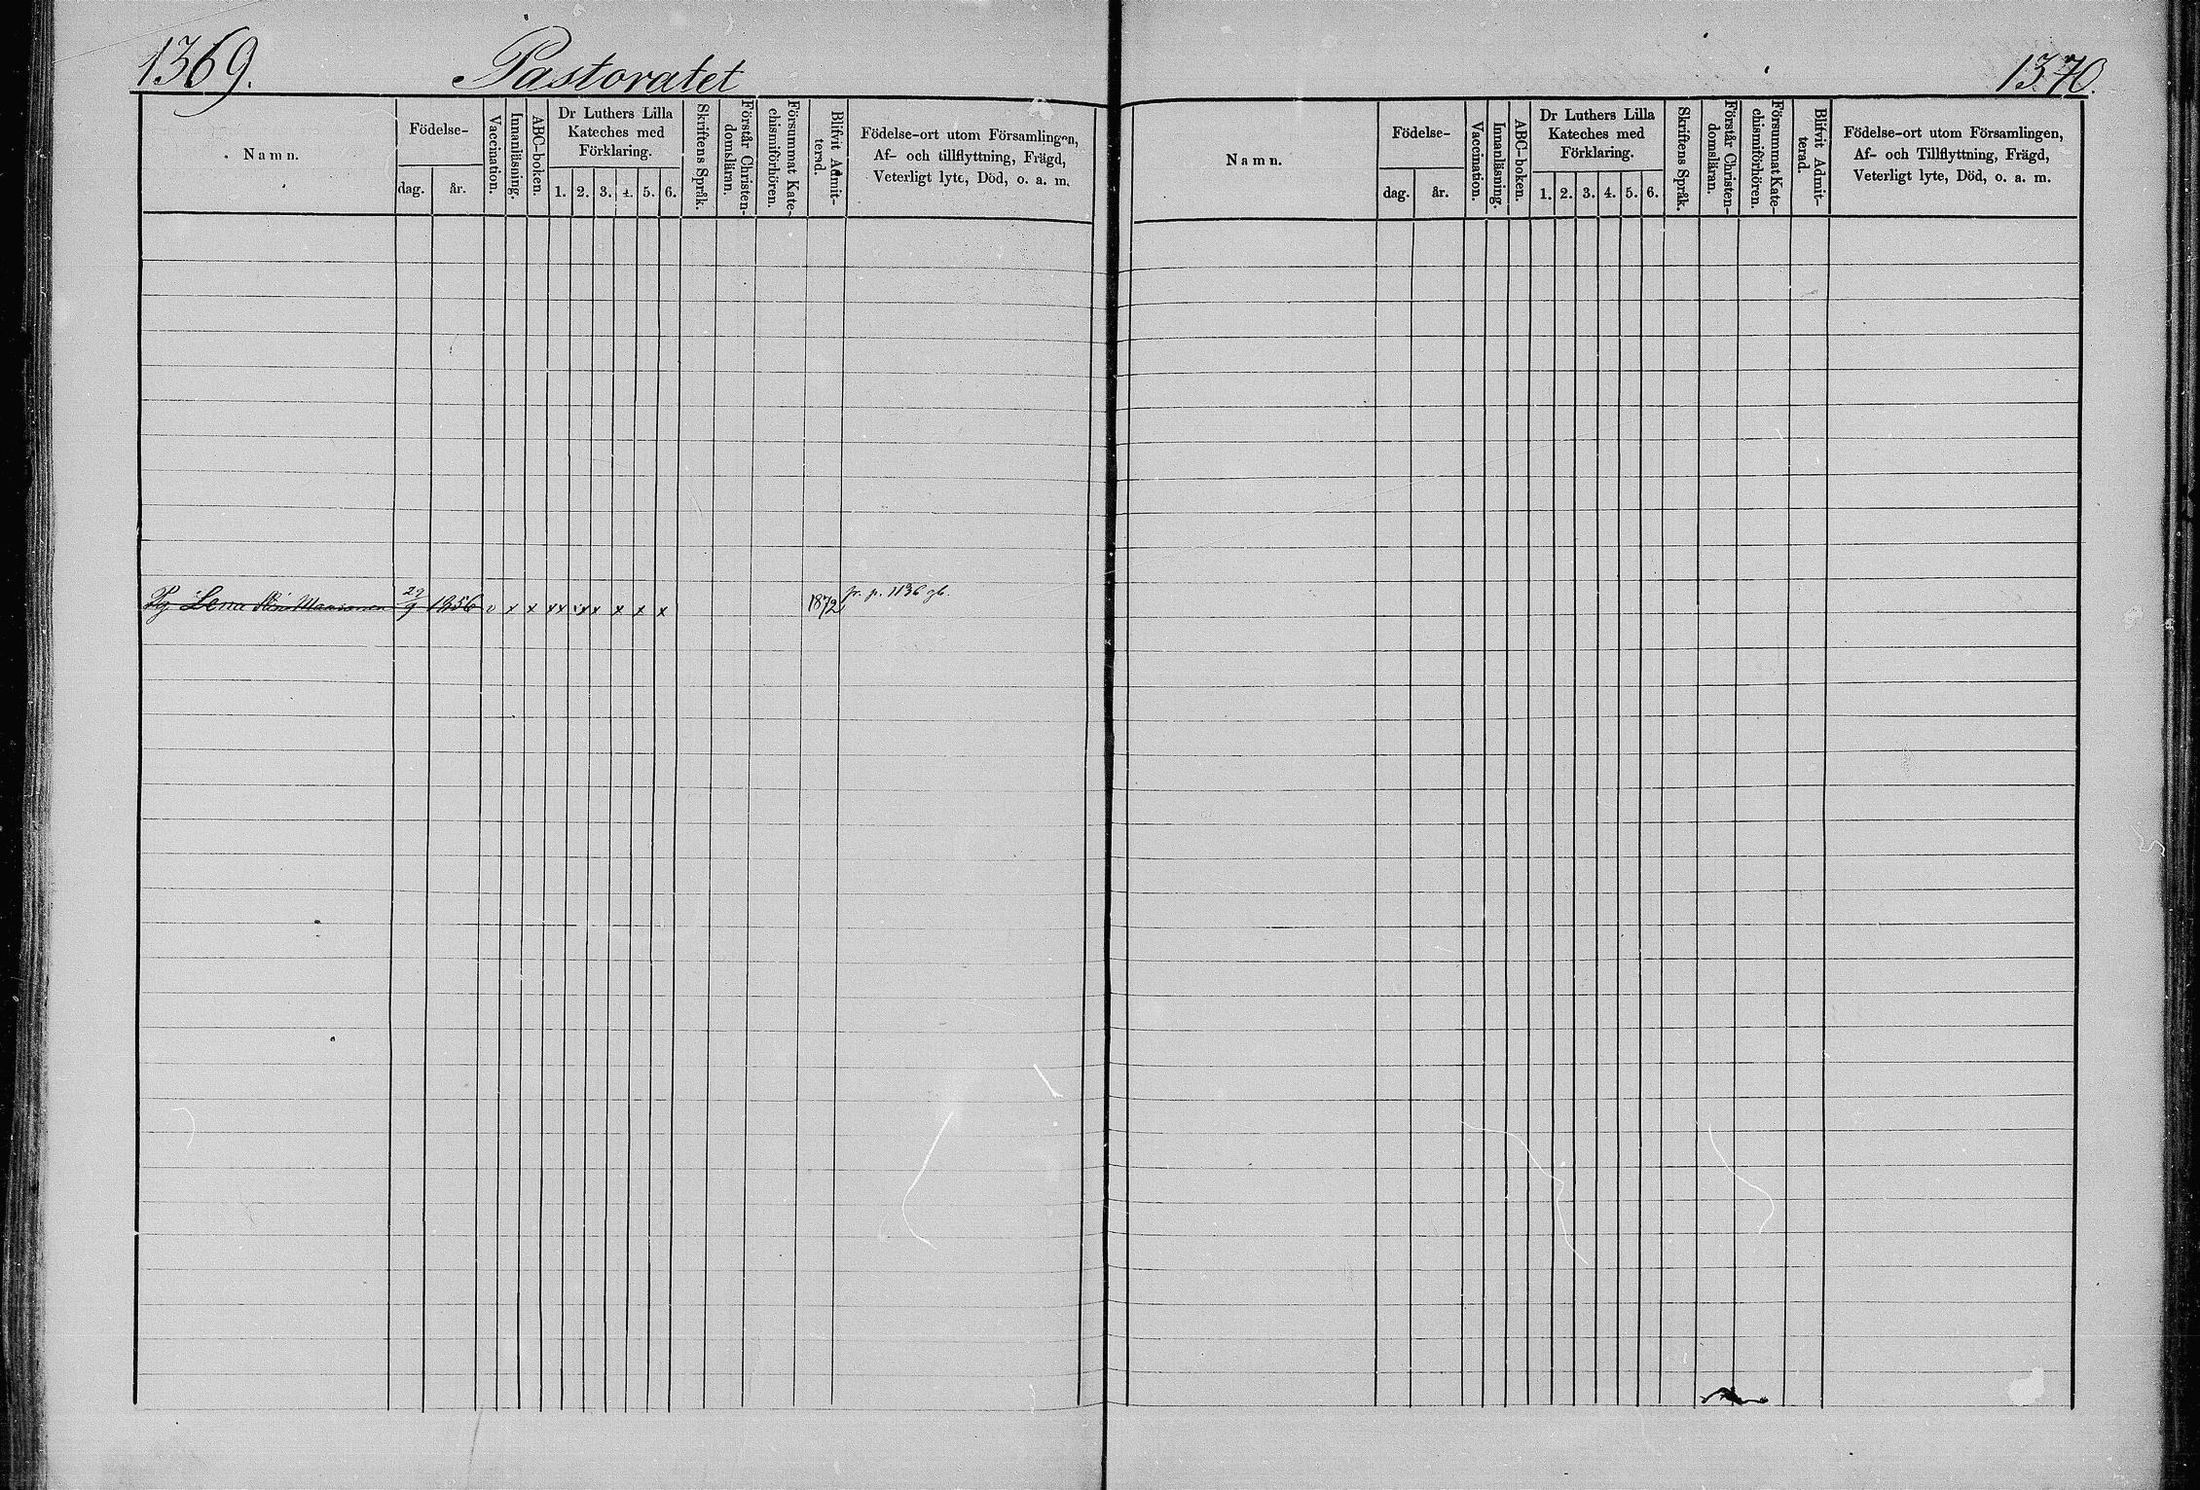 1369.
Pastoratet
Namn.
Födelse-
dag.
år.
Vaccination.
Innanläsning.
ABC-boken.
Dr Luthers Lilla
Kateches med
Förklaring.
1. 2. 3. 4. 5. 6.
Skriftens Språk.
Förstår Christen-
domsläran.
Försummat Kate-
chismiförhören.
Blifvit Admit-
terad.
Födelse-ort utom Församlingen,
Af- och tillflyttning, Frägd,
Veterligt lyte, Död, o. a. m.
Pg Lena 29/9 1856 v x x xx xx x x x 1872 fr. p. 1136 gb.
1370.
Namn.
Födelse-
dag.
år.
Vaccination.
Innanläsning.
ABC-boken.
Dr Luthers Lilla
Kateches med
Förklaring.
1. 2. 3. 4. 5. 6.
Skriftens Språk.
Förstår Christen-
domsläran.
Försummat Kate-
chismiförhören.
Blifvit Admit-
terad.
Födelse-ort utom Församlingen,
Af- och Tillflyttning, Frägd,
Veterligt lyte, Död, o. a. m.